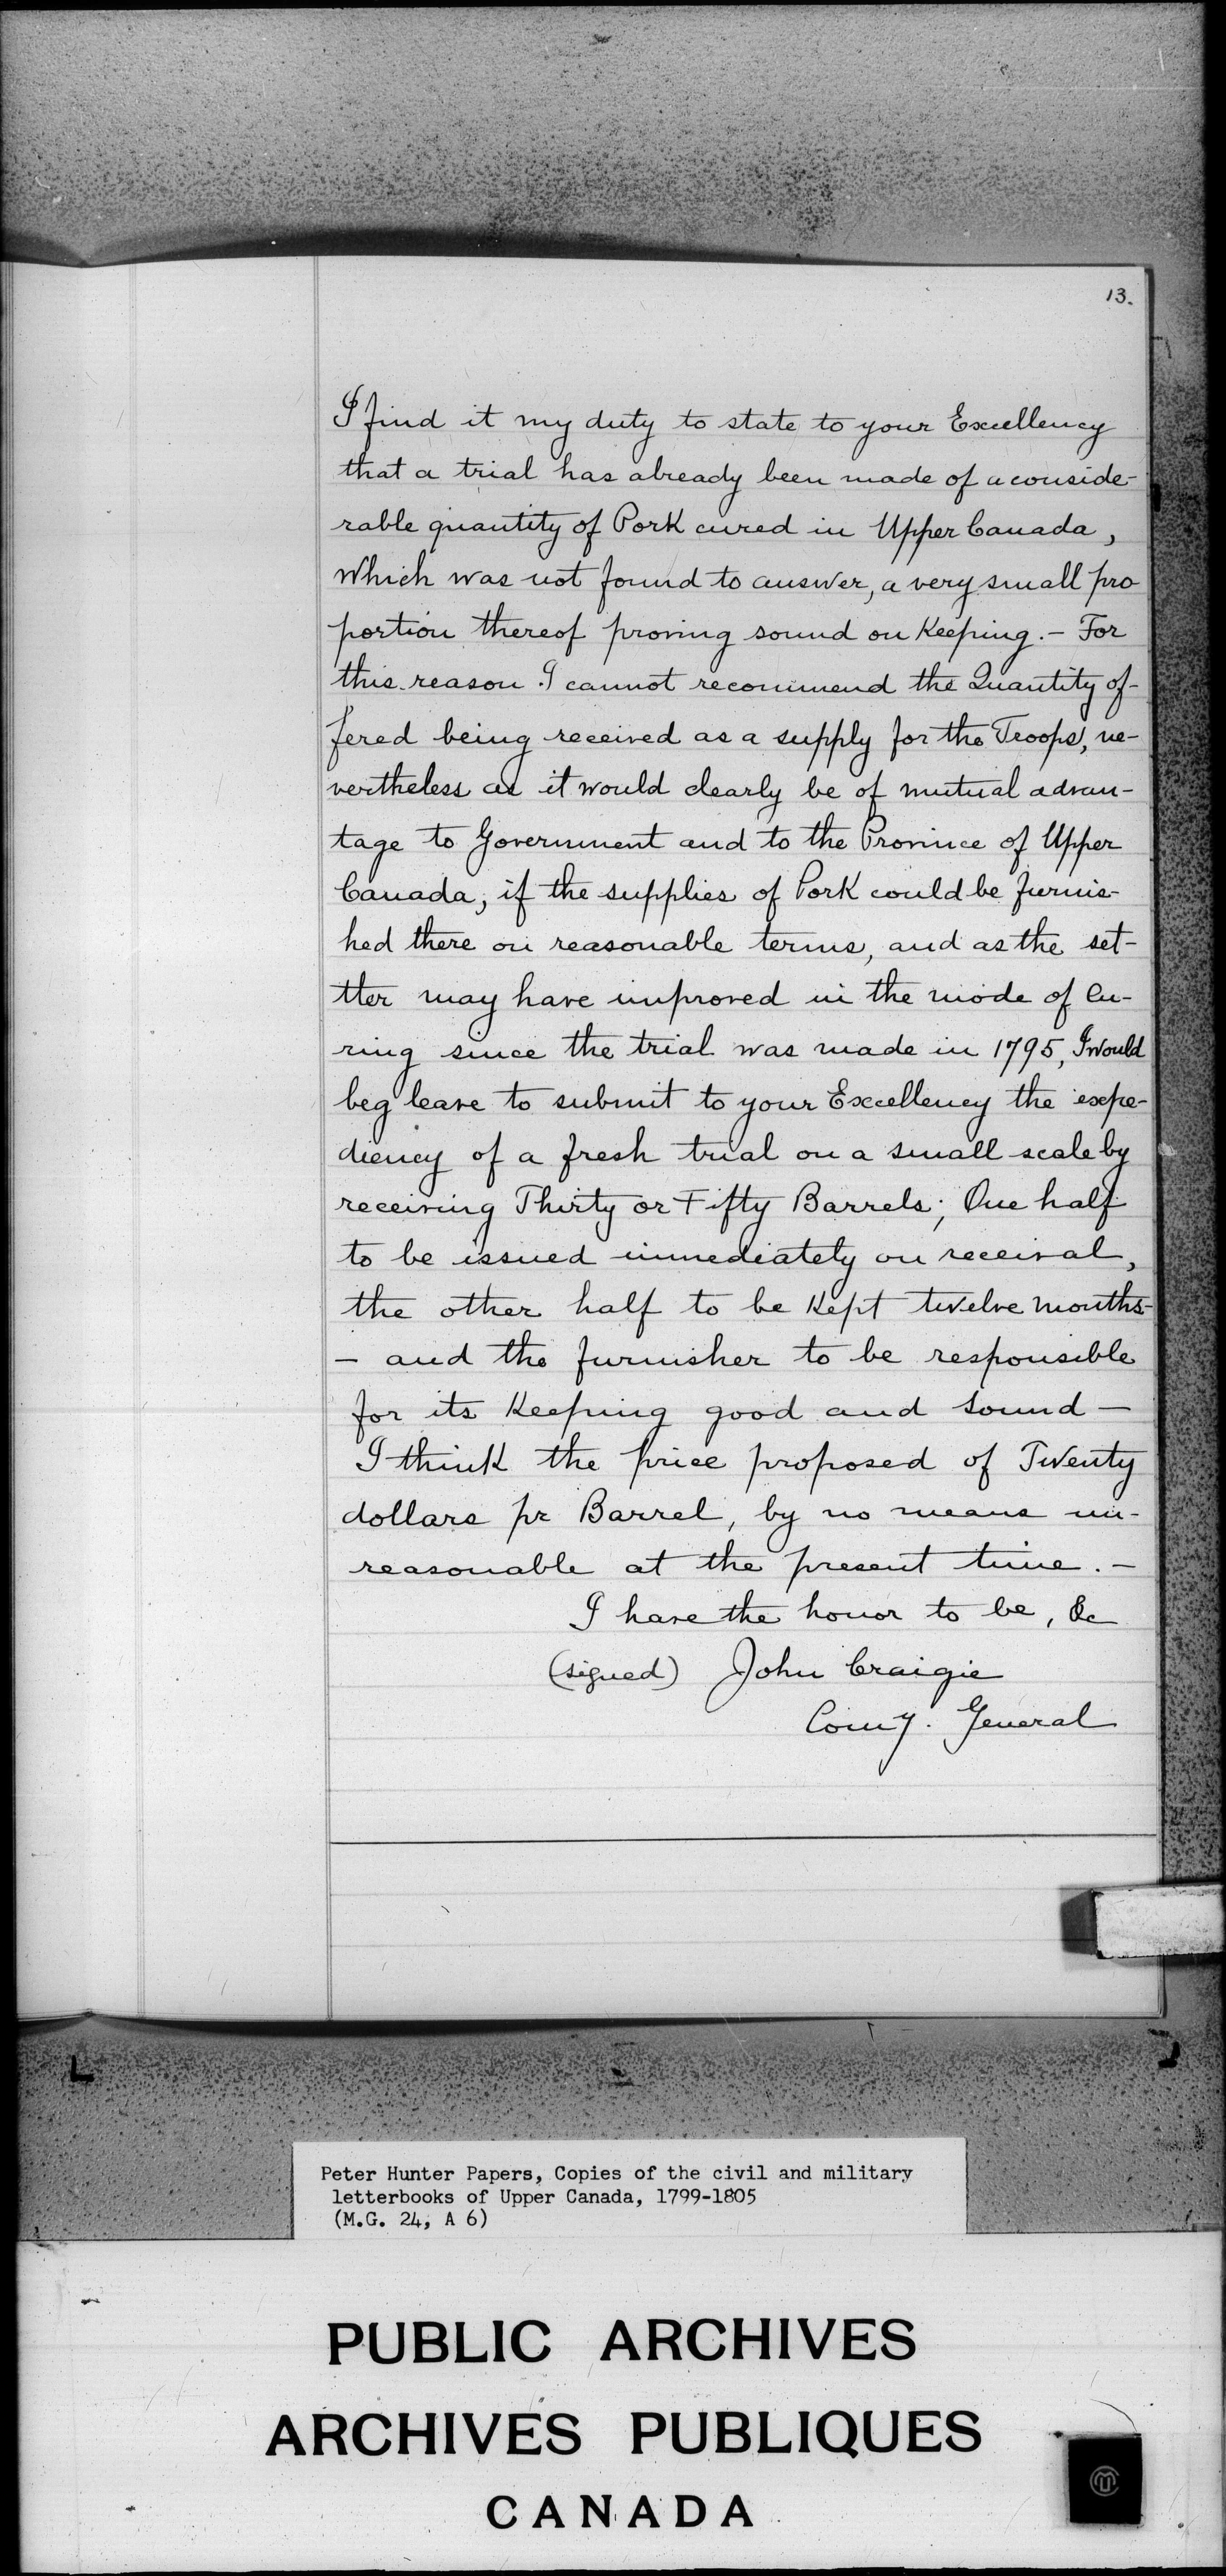 13.
I find it my duty to state to your Excellency
that a trial has already been made of a conside-
rable quantity of Pork cured in Upper Canada,
which was not found to answer, a very small pro
portion thereof proving sound on Keeping. - For
this reason I cannot recommend the Quantity of-
fered being received as a supply for the Troops, ne-
vertheless as it would clearly be of mutual advan-
tage to Government and to the Province of Upper
Canada, if the supplies of Pork could be furnis-
hed there on reasonable terms, and as the set-
tler may have improved in the mode of Cu-
ring since the trial was made in 1795, I would
beg leave to submit to your Excellency the expe-
diency of a fresh trial on a small scale by
receiving Thirty or Fifty Barrels; One half
to be issued immediately on receival,
the other half to be Kept twelve months-
- and the furnisher to be responsible
for its Keeping good and sound -
I think the price proposed of Twenty
dollars pr Barrel, by no means un-
reasonable at the present time. -
I have the honor to be, &c
(signed) John Craigie
Comy. General
Peter Hunter Papers, Copies of the civil and military
letterbooks of Upper Canada, 1799-1805
(M.G. 24, A 6)
PUBLIC ARCHIVES
ARCHIVES PUBLIQUES
CANADA